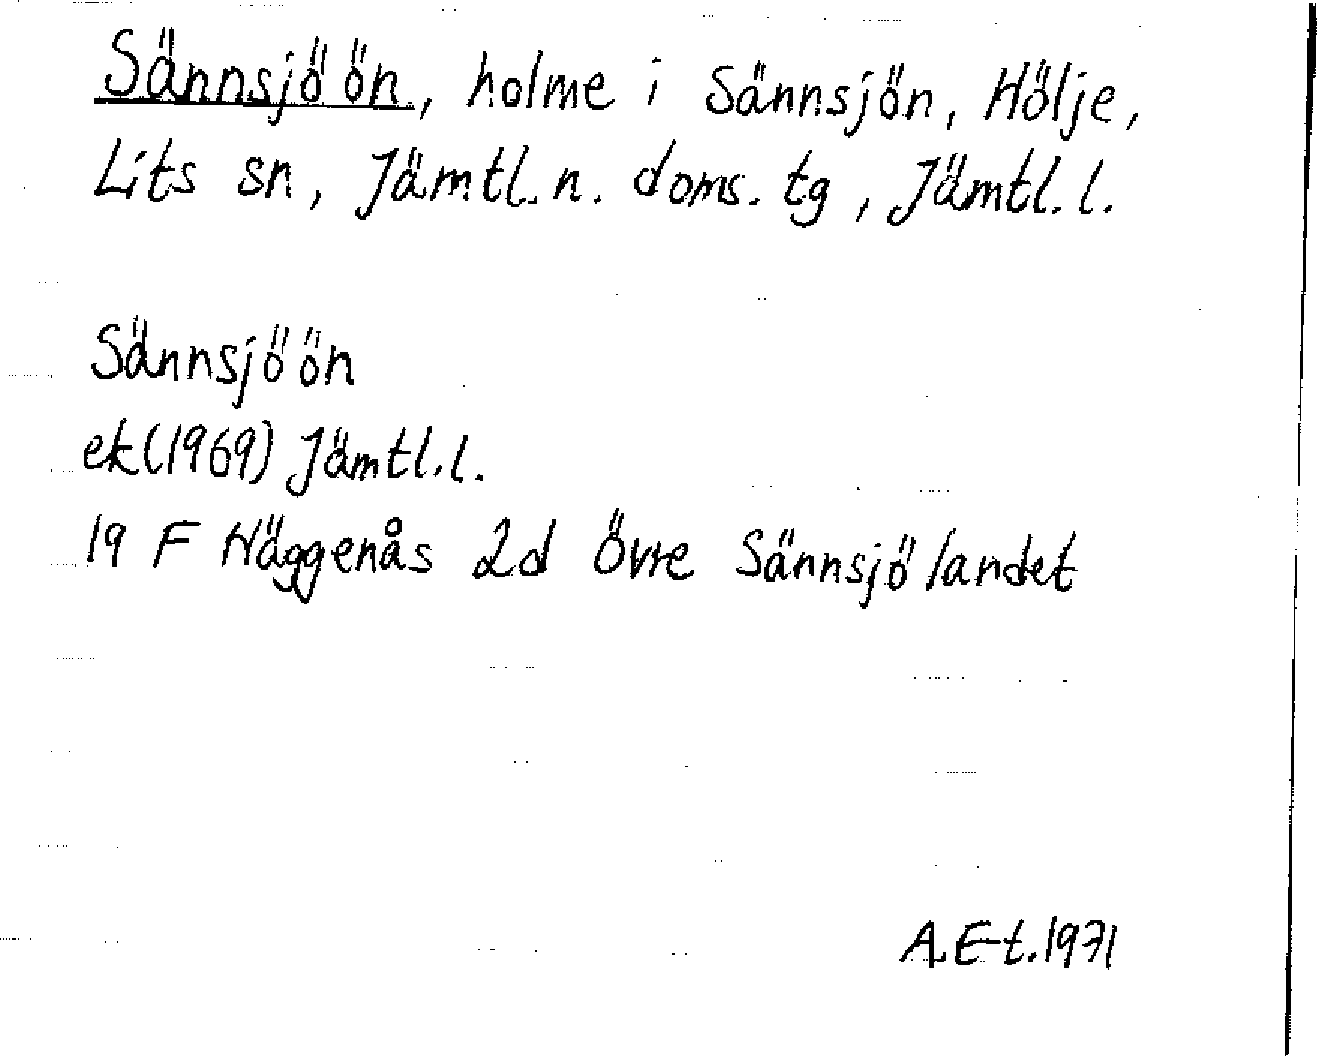 Sännsjöön, holme i Sännsjön, Hölje,
Lits sn, Jämtl. n. doms. tg, Jämtl. l.
Sännsjöön
ek (1969) Jämtl. l.
19 F Häggenås 2d Övre Sännsjölandet
A. E-t. 1971